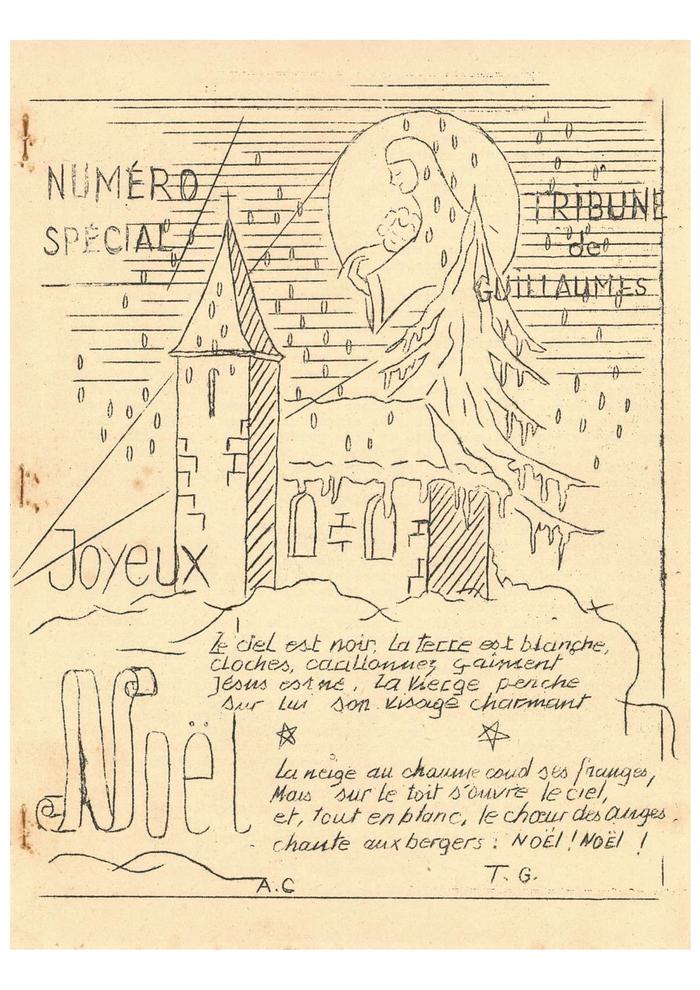 NUMÉRO
SPÉCIAL
TRIBUNE
de
GUILLAUMES
Joyeux
Noël
Le ciel est noir, la terre est blanche,
cloches, carillonnez gaiment
Jésus est né, la Vierge penche
sur lui son visage charmant
La neige au chaume coud ses franges,
Mais sur le toit s'ouvre le ciel,
et, tout en blanc, le chœur des anges.
chante aux bergers : NOËL ! NOËL !
T. G.
A.C